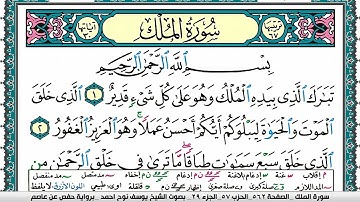 سُورَةُ الْمُلْكِ
بِسْمِ اللَّهِ الرَّحْمَٰنِ الرَّحِيمِ
تَبَارَكَ الَّذِي بِيَدِهِ الْمُلْكُ وَهُوَ عَلَىٰ كُلِّ شَيْءٍ قَدِيرٌ ١ الَّذِي خَلَقَ
الْمَوْتَ وَالْحَيَوٰةَ لِيَبْلُوَكُمْ أَيُّكُمْ أَحْسَنُ عَمَلًا وَهُوَ الْعَزِيزُ الْغَفُورُ ٢
الَّذِي خَلَقَ سَبْعَ سَمَٰوَٰتٍ طِبَاقًا مَّا تَرَىٰ فِي خَلْقِ الرَّحْمَٰنِ مِن
سورة الملك الصفحة ٥٦٢ الحزب ٥٧ الجزء ٢٩ بصوت الشيخ يوسف نوح احمد برواية حفص عن عاصم